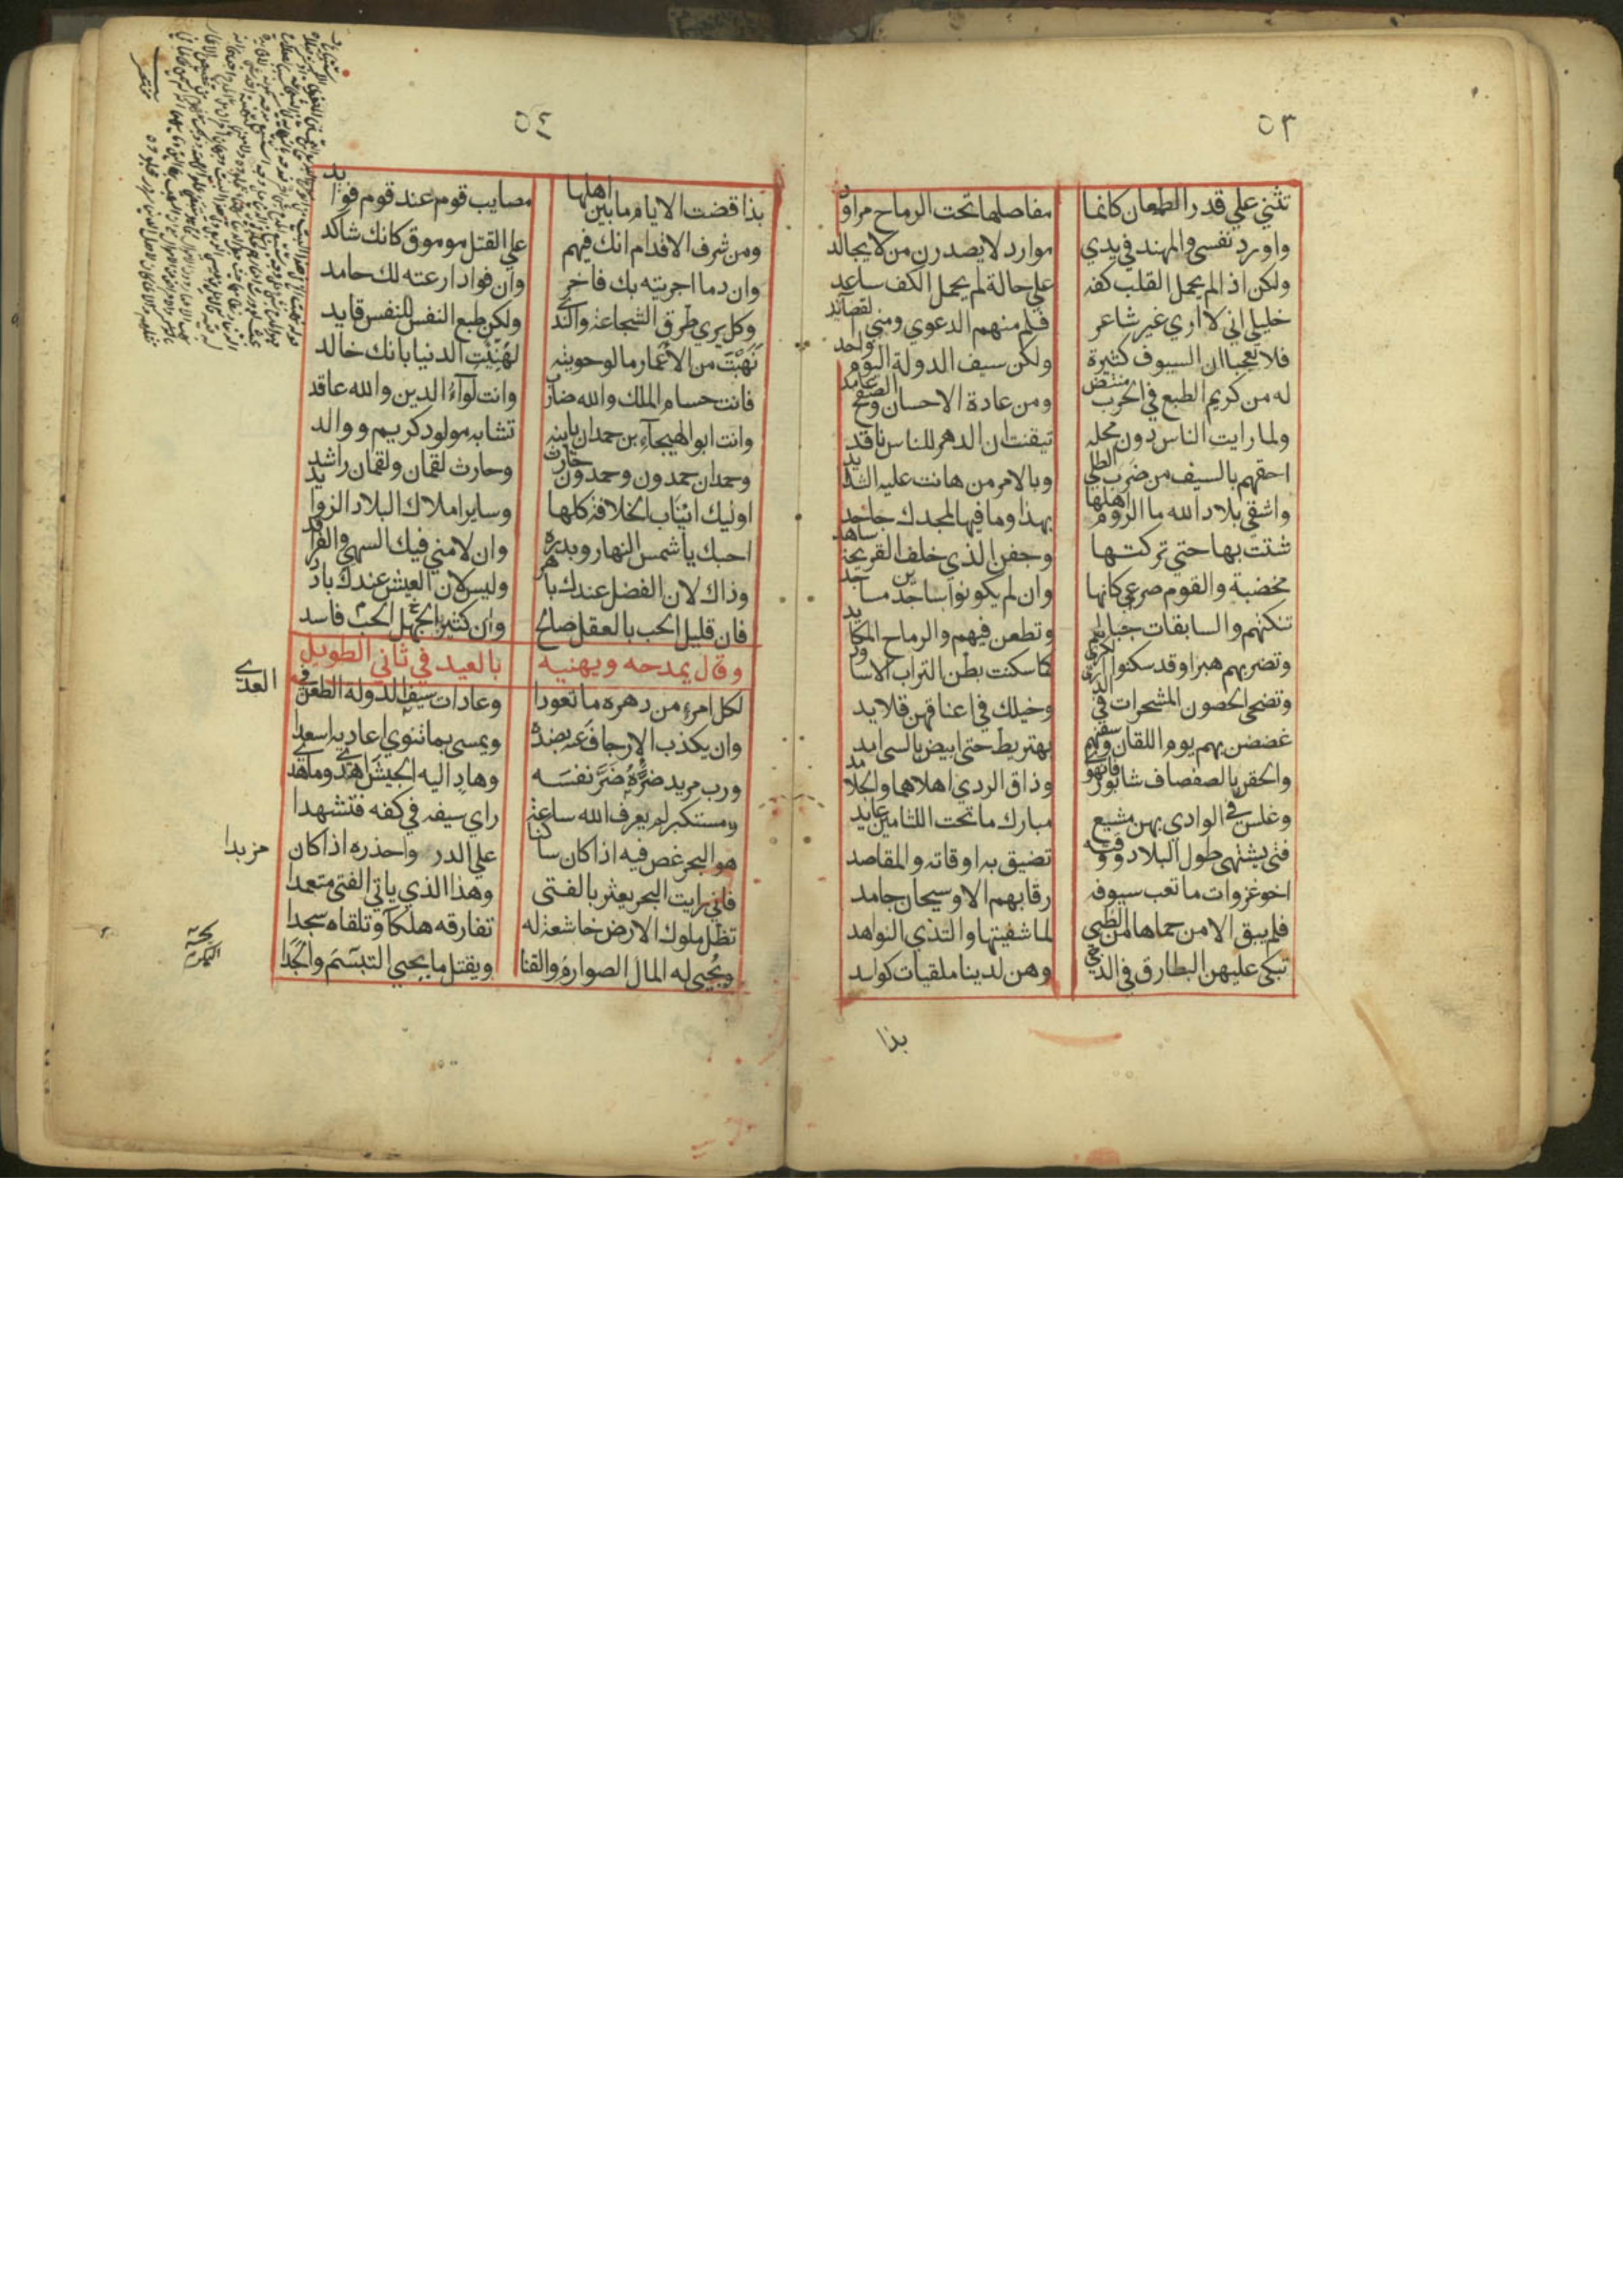 ٥٣
تثني علي قدر الطعان كانما مفاصلها تحت الرماح مراود
واورد نفسي والمهند في يدي موارد لا يصدرن من لا يجالد
ولكن اذا لم يحمل القلب كفه علي حالة لم يحمل الكف ساعد
خليلي اني لا اري غير شاعر فلم منهم الدعوي ومني لقصائد
فلا تعجبا ان السيوف كثيرة ولكن سيف الدولة اليوم واحد
له من كريم الطبع في الحرب منتض ومن عادة الاحسان والصفح غامد
ولما رايت الناس دون محله تيقنت ان الدهر للناس ناقد
احقهم بالسيف من ضرب الطلي وبالامر من هانت عليه الشدايد
واشقي بلاد الله ما الروم اهلها بهذا وما فيها لمجدك جاحد
شننت بها حتي تركتها وجفن الذي خلف القريحة ساهد
مخضبة والقوم صرعي كانها وان لم يكونوا ساجدين مساجد
تنكسهم والسابقات جبالهم وتطعن فيهم والرماح المكايد
وتضربهم هبرا وقد سكنوا الكدي كما سكنت بطن التراب الاساود
وتضحي الحصون المشمخرات في الذري وخيلك في اعناقهن قلايد
غضضن بهم يوم اللقان وسقنهم بهنريط حتي ابيض بالسي امد
والحقن بالصفصاف شابور فانهوي وذاق الردي اهلاهما والجلامد
وغلس في الوادي بهن مشيع مبارك ما تحت اللثامين عابد
فتي يشتهي طول البلاد ووقته تضيق به اوقاته والمقاصد
اخو غزوات ما تغب سيوفه رقابهم الا وسيحان جامد
فلم يبق الا من حماها من الظبي لما شفتيها والثدي النواهد
تبكي عليهن البطارق في الدجي وهن لدينا ملقيات كواسد
بذا
٥٤
بذا قضت الايام ما بين اهلها مصايب قوم عند قوم فوايد
ومن شرف الاقدام انك فيهم علي القتل موموق كانك شاكد
وان دما اجريته بك فاخر وان فوادا رعته لك حامد
وكل يري طرق الشجاعة والندي ولكن طبع النفس للنفس قايد
نَهَبْتَ من الاعمار ما لو حويته لهُنِيَتِ الدنيا بانك خالد
فانت حسام الملك والله ضارب وانت لوآءُ الدين والله عاقد
وانت ابو الهيجآء بن حمدان يا ابنه تشابه مولود كريم ووالد
وحمدان حمدون وحمدون حارث وحارث لقمان ولقمان راشد
اوليك انيَاب الخلافة كلها وساير املاك البلاد الزوايد
احبك يا شمس النهار وبدره وان لامني فيك السهي والفراقد
وذاك لان الفضل عندك باهر وليس لان العيش عندك بارد
فان قليل الحب بالعقل صالح وان كثير الحب بالجهل فاسد
وقال يمدحه ويهنيه بالعيد في ثاني الطويل
لكل امرء من دهره ما تعودا وعادات سيف الدولة الطعن في العدي
وان يكذب الارجاف عنه بضده ويمسي بما تنوي اعاديه اسعدا
ورب مريد ضرَّهُ ضَرَّ نفسَه وهاد اليه الجيش اهدي وما هدي
ومستكبر لم يعرف الله ساعة راي سيفه في كفه فتشهدا
هو البحر غص فيه اذا كان ساكنا علي الدر واحذره اذا كان مزبدا
فاني رايت البحر يعثر بالفتي وهذا الذي ياتي الفتي متعمدا
تظل ملوك الارض خاشعة له تفارقه هلكا وتلقاه سجدا
ويُحيي له المال الصوارمُ والقنا ويقتل ما يحيي التبسّم والجَدا